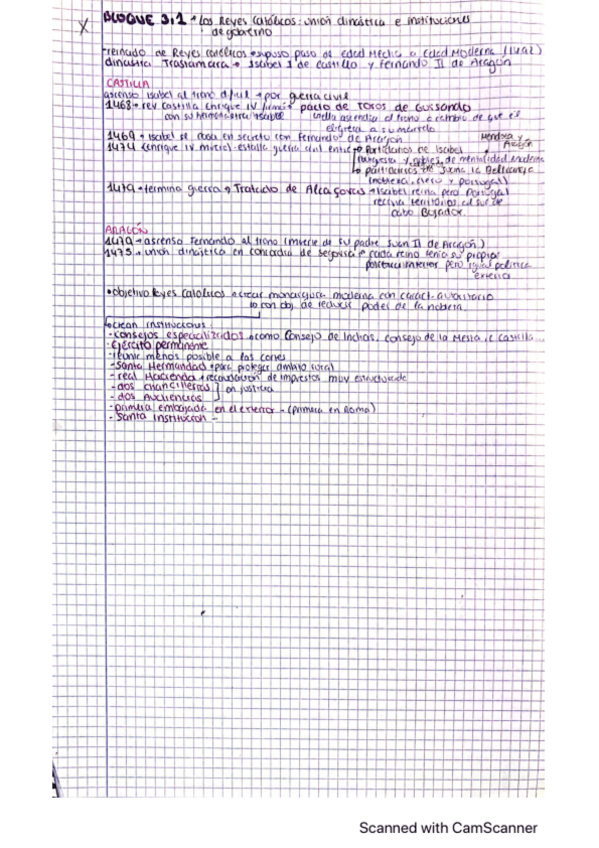 BLOQUE 3.1 → Los Reyes Católicos: unión dinástica e instituciones
de gobierno
-reinado de Reyes católicos → supuso paso de Edad Media a Edad Moderna
dinastía Trastámara → Isabel I de Castilla y Fernando II de Aragón
CASTILLA
ascenso Isabel al trono difícil → por guerra civil
1468 → rey Castilla Enrique IV firmó pacto de Toros de Guisando
con su hermanastra Isabel
ella ascendía al trono a cambio de que él
eligiera a su marido
1469 → Isabel se casa en secreto con Fernando de Aragón
1474 Enrique IV muere → estalla guerra civil entre → Partidarios de Isabel
Mendoza y
Aragón
burguesía y nobles de mentalidad
→ partidarios Juana la Beltraneja
(nobleza, clero y portugal)
1479 → termina guerra → Tratado de Alcaçovas → Isabel reina pero Portugal
territorios al sur de
cabo Bojador.
ARAGÓN
1479 → ascenso Fernando al trono (muerte de su padre Juan II de Aragón)
1475 → unión dinástica en concordia de Segovia → cada reino tenía su propia
política interior pero igual política
exterior
• objetivo Reyes Católicos → crear monarquía moderna con autoritario
con obj. de reducir poder de la nobleza.
crean instituciones
- consejos especializados → como Consejo de Indias, consejo de la Mesta, C Castilla...
- Ejército permanente
- reunir menos posible a las cortes
- Santa Hermandad → para proteger ámbito rural
- real Hacienda → recaudación de impuestos muy estructurada
- dos chancillerías ] en justicia
- dos Audiencias
- primera embajada en el exterior - (primera en Roma)
- Santa Institución -
Scanned with CamScanner